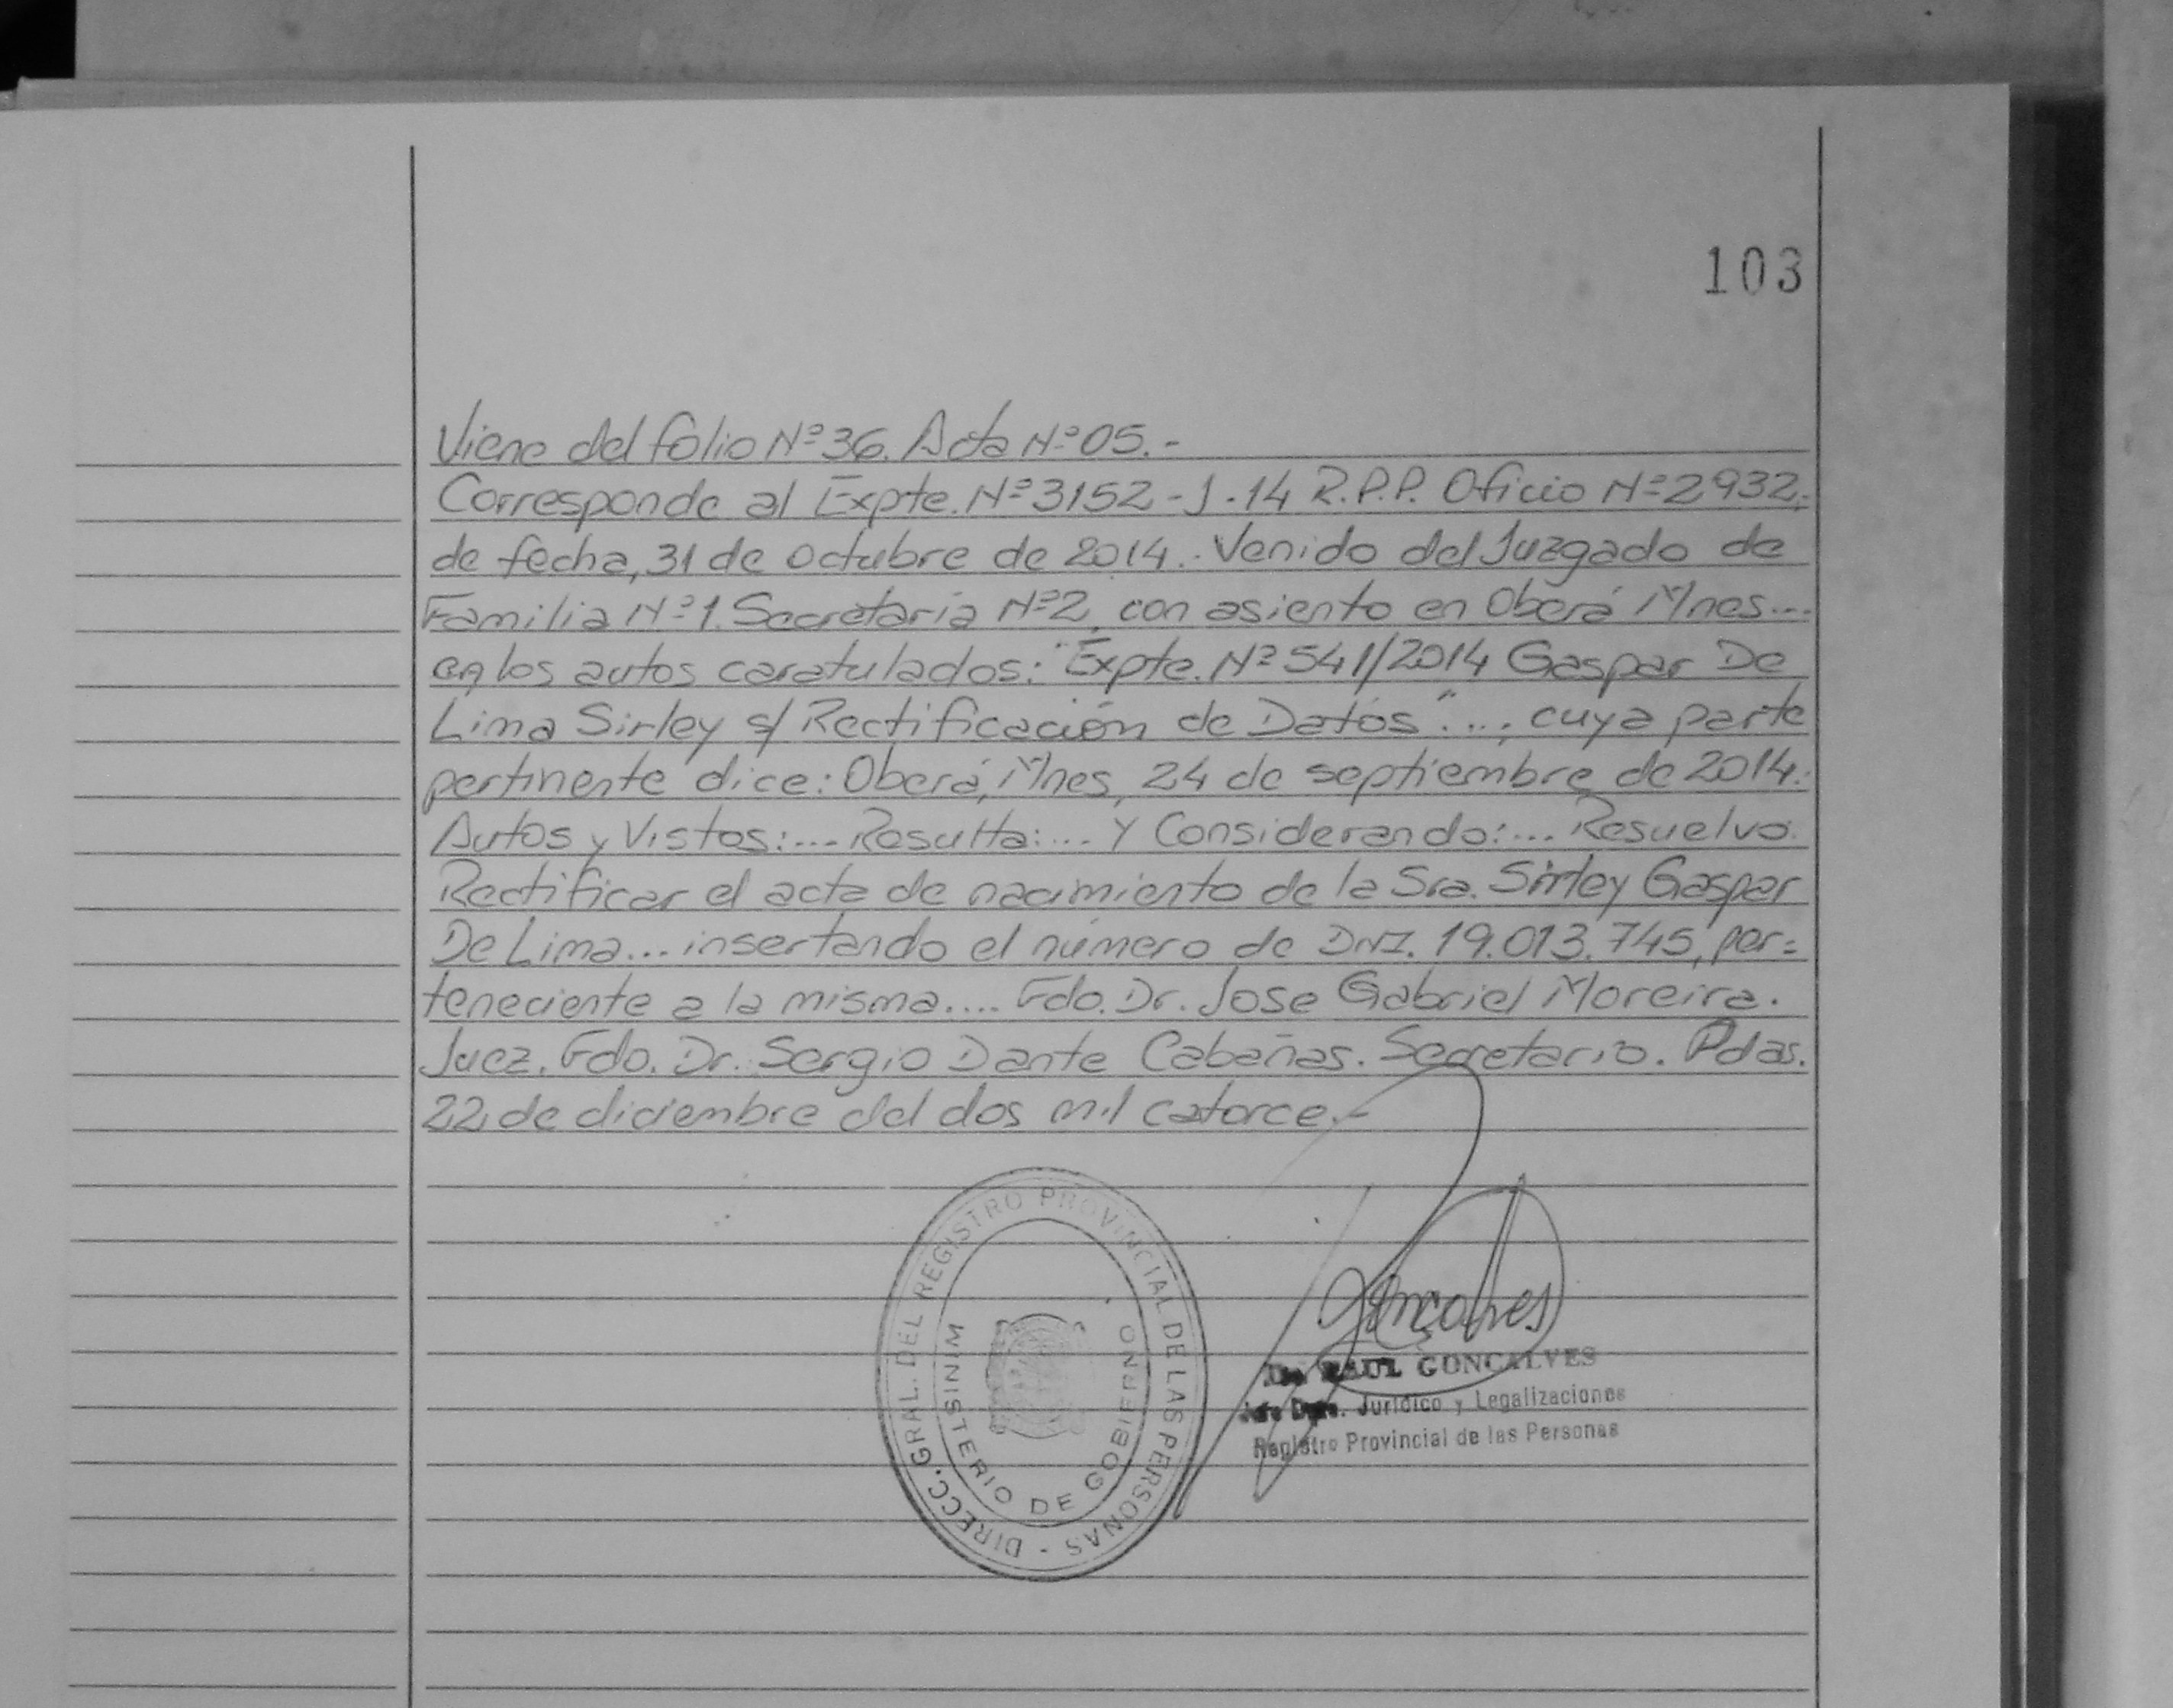 103
Viene del folio Nº 36. Acta Nº 05.-
Corresponde al Expte. Nº 3152-J-14 R.P.P. Oficio Nº 2932,
de fecha, 31 de octubre de 2014.. Venido del Juzgado de
Familia Nº 1. Secretaría Nº 2, con asiento en Oberá Mnes...
en los autos caratulados: "Expte. Nº 541/2014 Gaspar De
Lima Sirley s/ Rectificación de Datos"...; cuya parte
pertinente dice: Oberá, Mnes, 24 de septiembre de 2014.
Autos y Vistos:... Resulta:... Y Considerando:... Resuelvo.
Rectificar el acta de nacimiento de la Sra. Sirley Gaspar
De Lima... insertando el número de DNI. 19.013.745, per=
teneciente a la misma.... Fdo. Dr. Jose Gabriel Moreira.
Juez. Fdo. Dr. Sergio Dante Cabañas. Secretario. Pdas.
22 de diciembre del dos mil catorce.-
DIRECC. GRAL. DEL REGISTRO PROVINCIAL DE LAS PERSONAS -
MINISTERIO DE GOBIERNO
Goncalves
Dr. RAUL GONCALVES
Jefe Dpto. Jurídico y Legalizaciones
Registro Provincial de las Personas